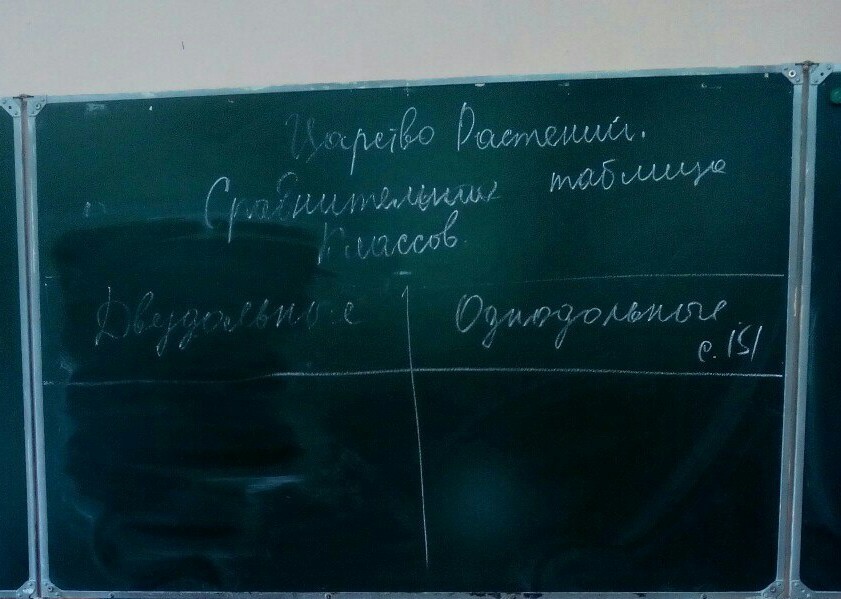 Царство Растений.
Сравнительная таблица
Классов.
Двудольные Однодольные
с. 151